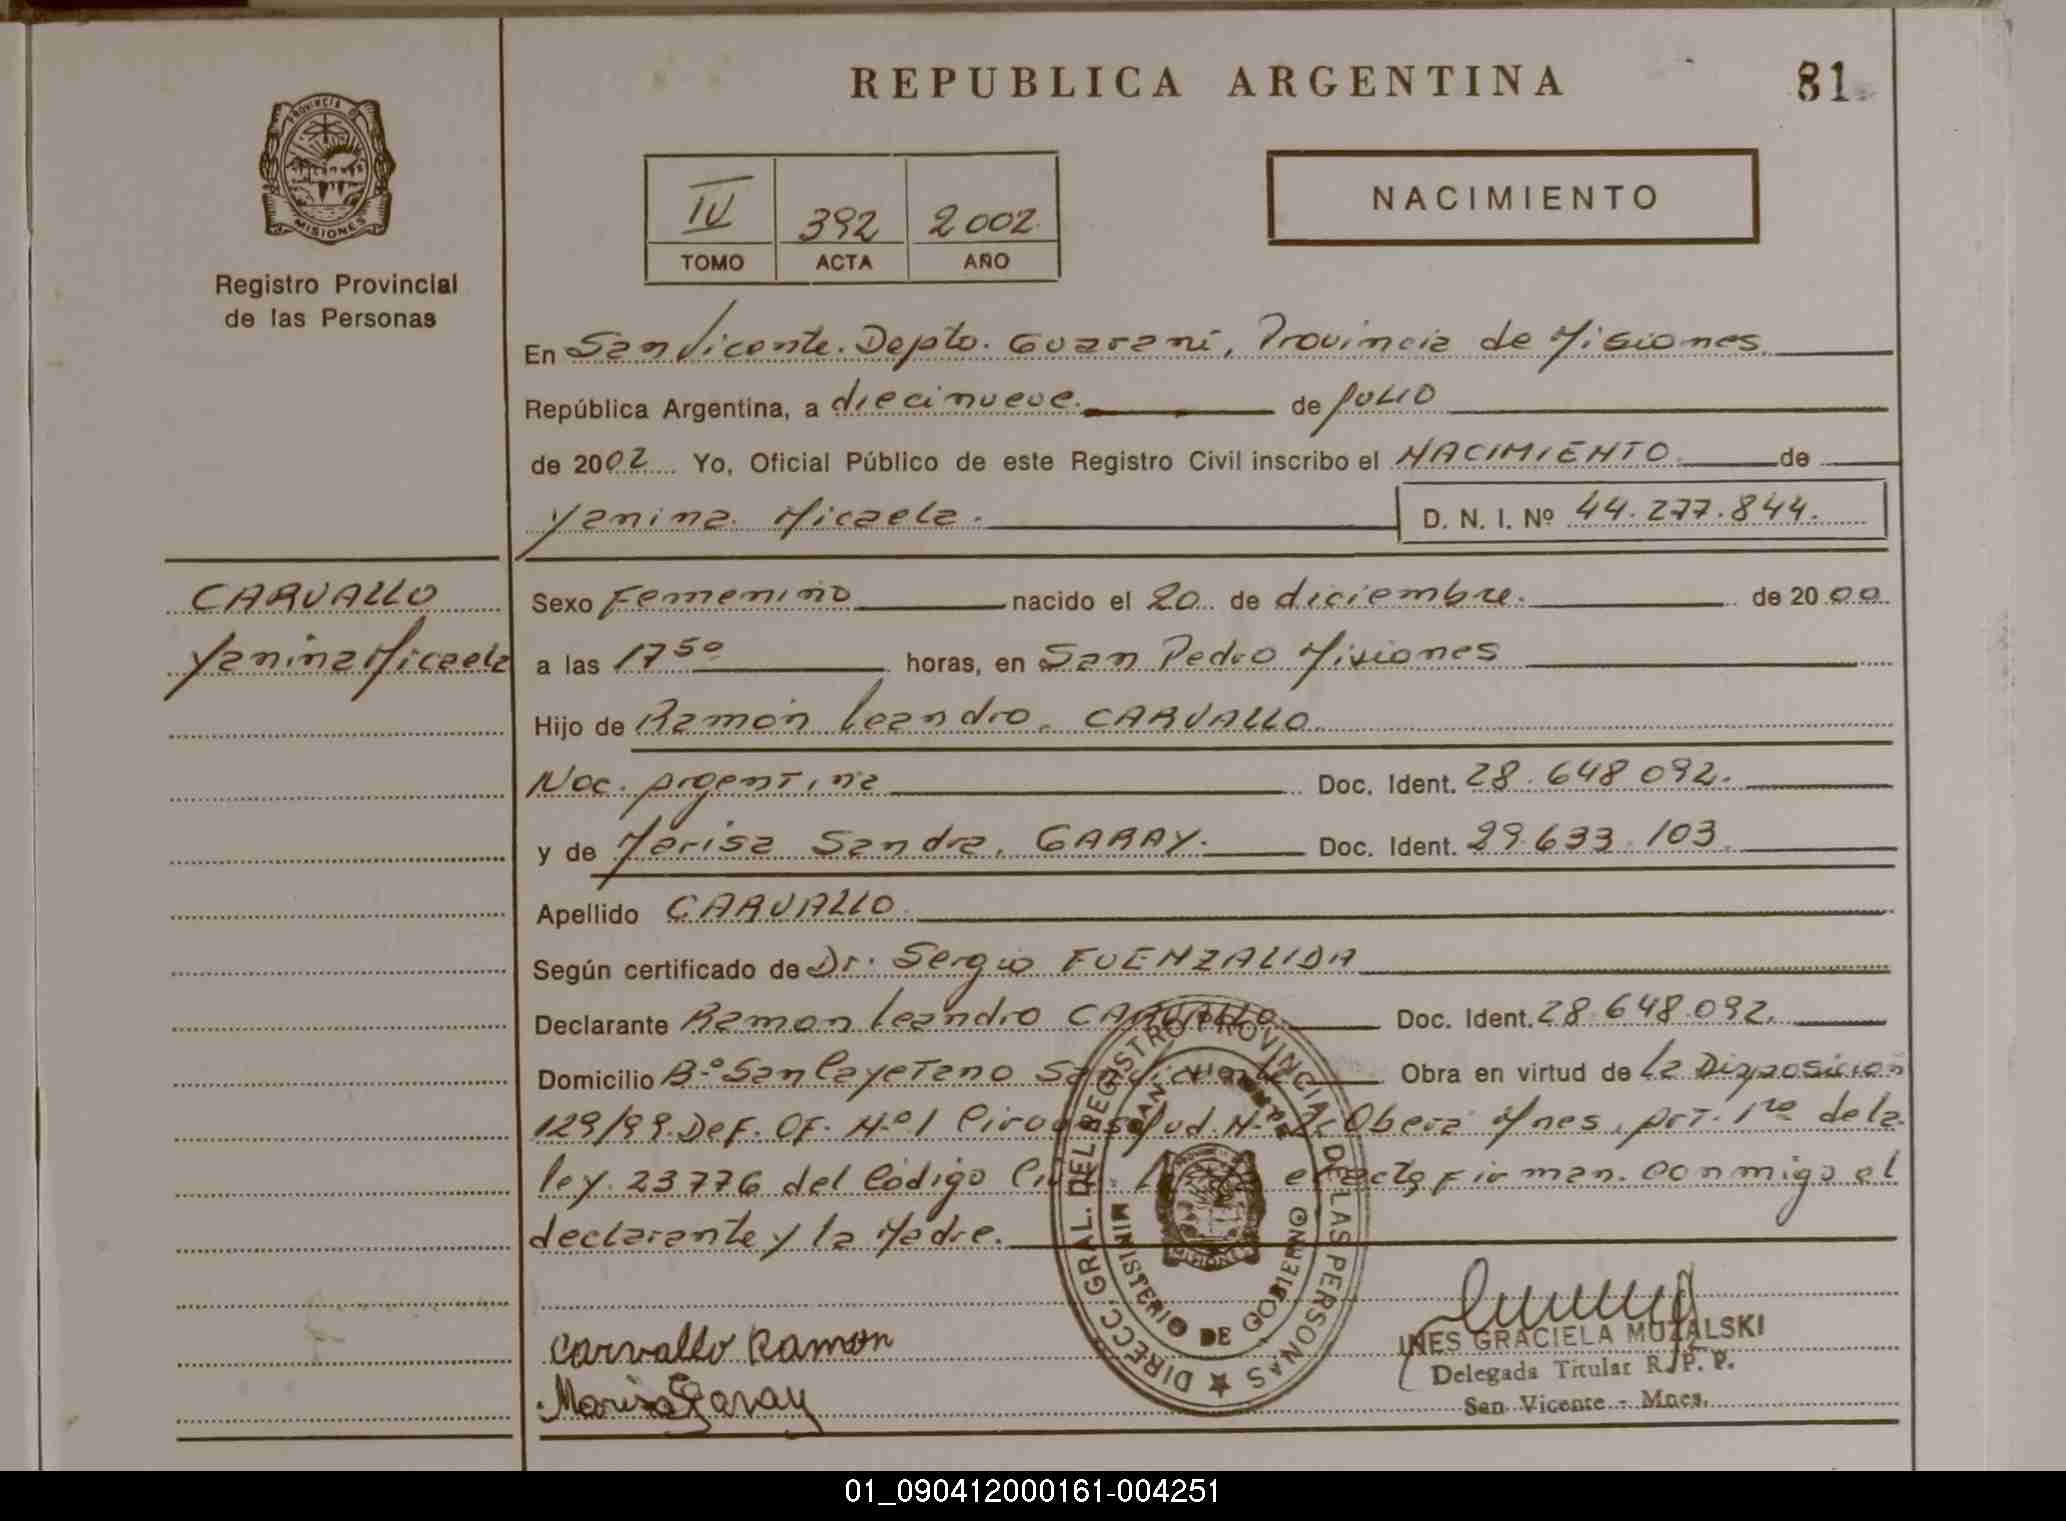 REPUBLICA ARGENTINA
81
PROVINCIA DE
MISIONES
Registro Provincial
de las Personas
IV 392 2002
TOMO ACTA AÑO
NACIMIENTO
En San Vicente. Depto. Guaraní, Provincia de Misiones
República Argentina, a diecinueve. de JULIO
de 2002 Yo, Oficial Público de este Registro Civil inscribo el NACIMIENTO de
Yanina Micaela. D. N. I. Nº 44.277.844.
CARVALLO
Yanina Micaela
Sexo Femenino nacido el 20 de diciembre. de 2000
a las 17 50 horas, en San Pedro Misiones
Hijo de Ramón Leandro. CARVALLO
Nac. Argentina Doc. Ident. 28.648 092.
y de Marisa Sandra. GARAY. Doc. Ident. 29.633.103
Apellido CARVALLO
Según certificado de Dr. Sergio FUENZALIDA
Declarante Ramon Leandro CARVALLO Doc. Ident. 28.648.092.
Domicilio Bº San Cayetano San Vicente Obra en virtud de la Disposición
129/99. Def. Of. Nº 1 Nº 2 Obera Mnes, prt. 1ra de la
ley. 23776 del Código firman. conmigo el
declarante y la Madre.
DIRECC. GRAL. DEL REGISTRO PROVINCIAL DE LAS PERSONAS
MINISTERIO DE GOBIERNO
MISIONES
Carvallo Ramon
Marisa Garay
INES GRACIELA MUZALSKI
Delegada Titular R. P. P.
San Vicente - Mnes.
01_090412000161-004251